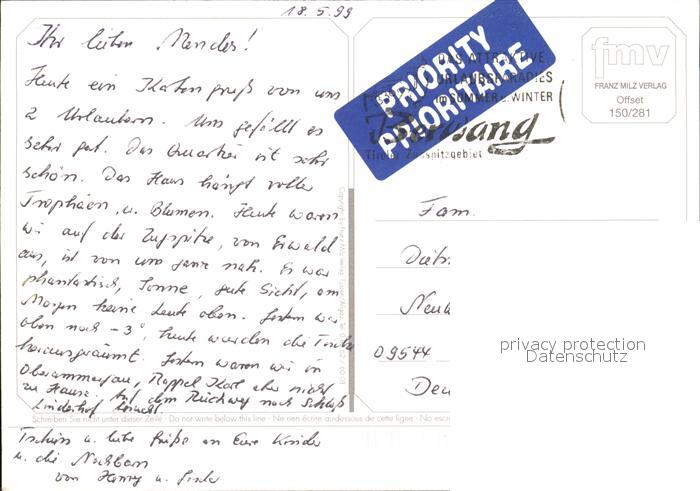 18.5.99
Ihr lieben Mendes!
Heute ein Kartengruß von uns
2 Urlaubern. Uns gefällt es
sehr gut. Das Quartier ist sehr
schön. Das Haus hängt voller
Trophäen u. Blumen. Heute waren
wir auf der Zugspitze, von Erwald
aus, ist von uns ganz nah. Es war
phantastisch, Sonne, gute Sicht, am
Morgen keine Leute oben. Gestern war
oben noch -3°, heute wurden die Tische
herausgeräumt. Gestern waren wir in
Oberammergau, Roppel Karl aber nicht
zu Hause. Auf dem Rückweg noch Schloß
Linderhof besucht.
Schreiben Sie nicht unter dieser Zeile · Do not write below this line · Ne rien écrire au-dessous de cette ligne · No escri
Tschüss u. liebe Grüße an Eure Kinder
u. die Nachbarn
von Henry u.
PRIORITY
PRIORITAIRE
DAS ATTRAKTIVE
URLAUBSPARADIES
IM SOMMER U. WINTER
Berwang
Tiroler Zugspitzgebiet
fmv
FRANZ MILZ VERLAG
Offset
150/281
Fam.
Dietr
Neu
09544
Deu
privacy protection
Datenschutz